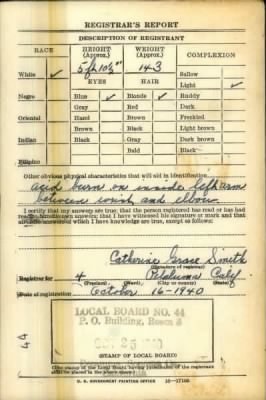 REGISTRAR'S REPORT
DESCRIPTION OF REGISTRANT
RACE HEIGHT (Approx.) WEIGHT (Approx.) COMPLEXION
5 ft 10½" 143
White ✓ EYES HAIR Sallow
Light ✓
Negro Blue ✓ Blonde ✓ Ruddy
Gray Red Dark
Oriental Hazel Brown Freckled
Brown Black Light brown
Indian Black Gray Dark brown
Bald Black
Filipino
Other obvious physical characteristics that will aid in identification
acid burn on inside left arm
between wrist and elbow
I certify that my answers are true; that the person registered has read or has had
read to him his own answers; that I have witnessed his signature or mark and that
all of his answers of which I have knowledge are true, except as follows:
Catherine Grace Smith
(Signature of registrar)
Registrar for 4 Petaluma Calif
(Precinct) (Ward) (City or county) (State)
Date of registration October 16-1940
LOCAL BOARD NO. 44
P. O. Building, Room 5
OCT 25 1940
(STAMP OF LOCAL BOARD)
(The stamp of the Local Board having jurisdiction of the registrant
shall be placed in the above space.)
U. S. GOVERNMENT PRINTING OFFICE 16-17105
44